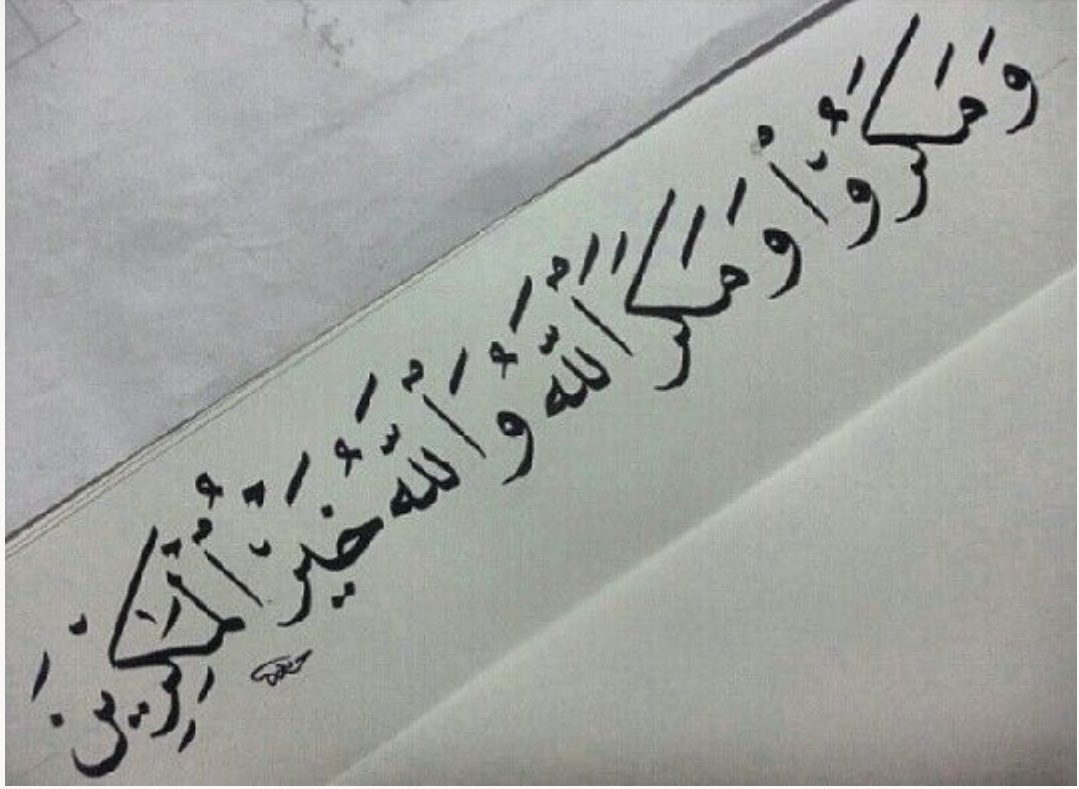 وَمَكَرُوا۟ وَمَكَرَ ٱللَّهُ وَٱللَّهُ خَيْرُ ٱلْمَـٰكِرِينَ